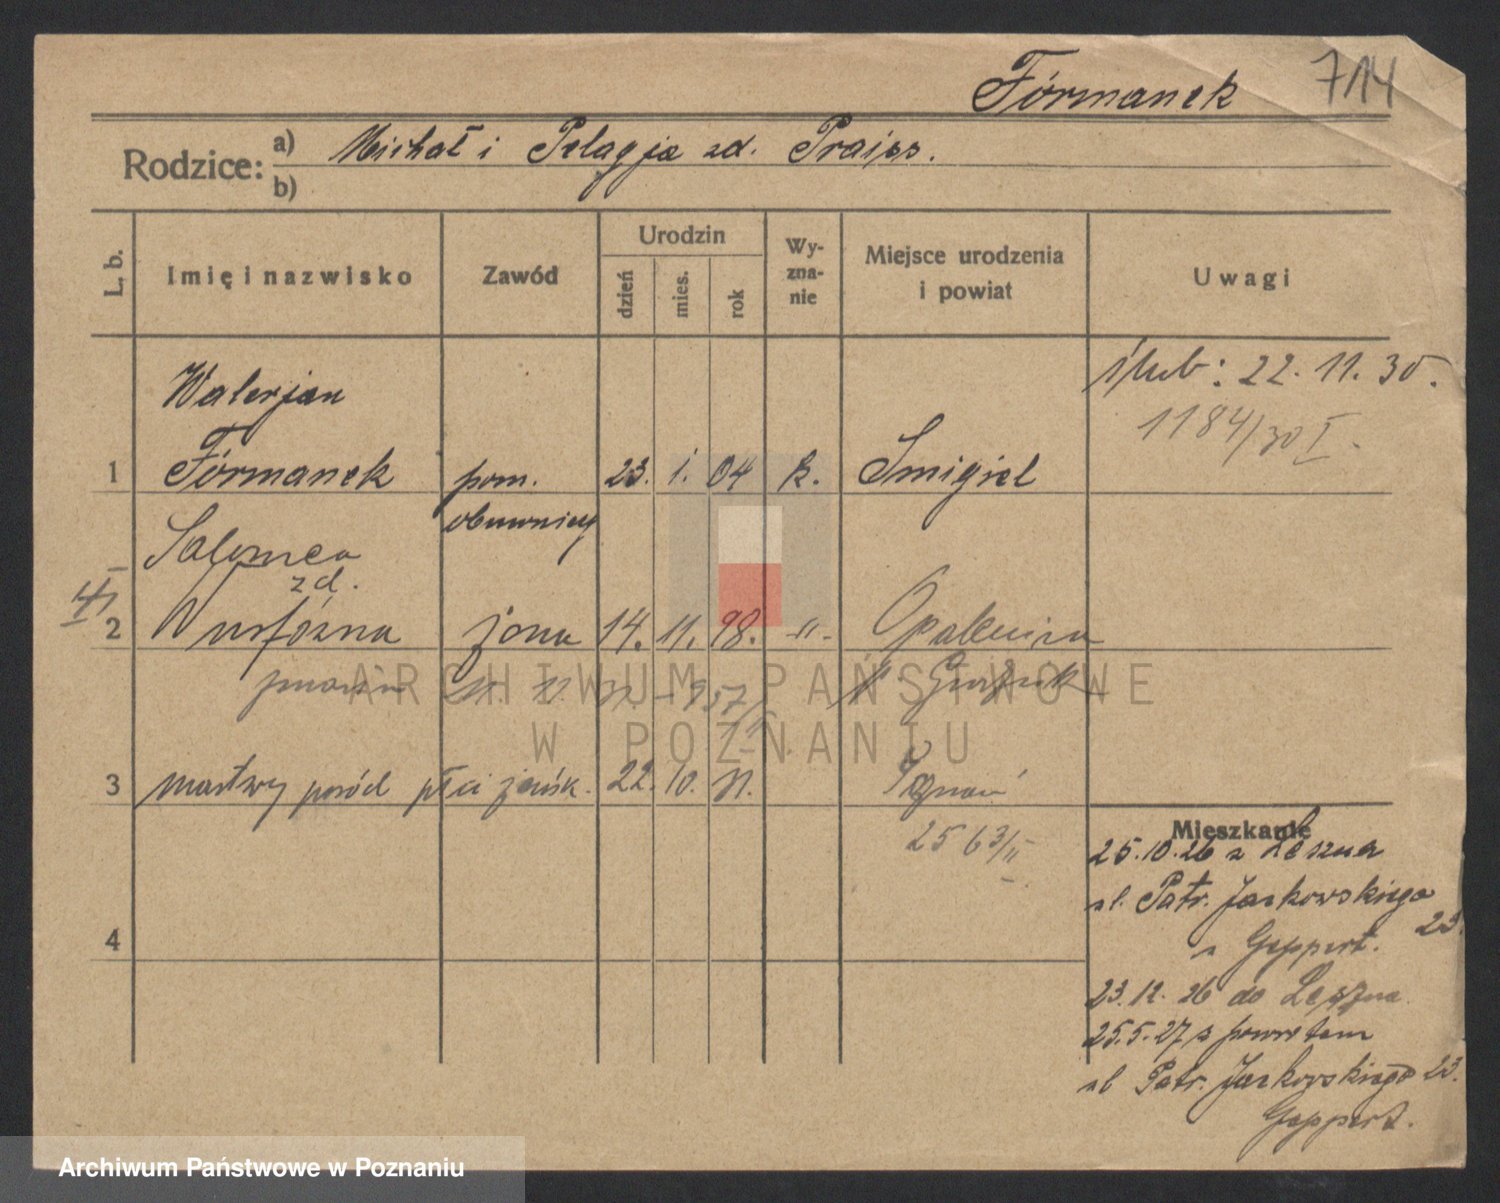 Fórmanek 714
Rodzice: a) Michał i Pelagja zd. Praiss.
b)
L. b. Imię i nazwisko Zawód Urodzin dzień mies. rok Wy-zna-nie Miejsce urodzenia i powiat Uwagi
ślub: 22. 11. 30.
1184/30 I.
Walerjan
1 Fórmanek pom. 23. 1. 04 k. Smigiel
obuwniczy
Salomea
zd.
2 żona 14. 11. 98. -"- Opalenica
3 martwy poród płci żeńsk. 22. 10. 31. Poznań
2563/II
Mieszkanie
25.10.26 z Leszna
ul. Patr. Jackowskiego 23.
u Geppert.
23.12.26 do Leszna.
25.5.27 z powrotem
ul Patr. Jackowskiego 23.
Geppert.
4
ARCHIWUM PAŃSTWOWE
W POZNANIU
Archiwum Państwowe w Poznaniu